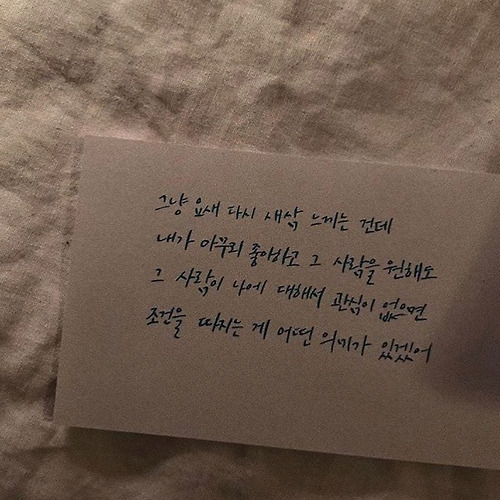 그냥 요새 다시 새삶 느끼는 건데
내가 아무리 좋아하고 그 사람을 원해도
그 사람이 나에 대해서 관심이 없으면
조건을 따지는 게 어떤 의미가 있겠어